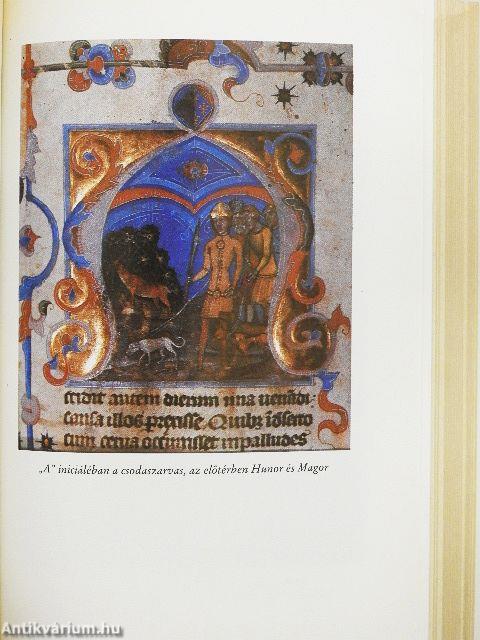 cidit autem dierum una venandi
causa illos perrexisse. Quibus in deserto
cum cerva occurrisset in paludes
„A” iniciáléban a csodaszarvas, az előtérben Hunor és Magor
Antikvárium.hu